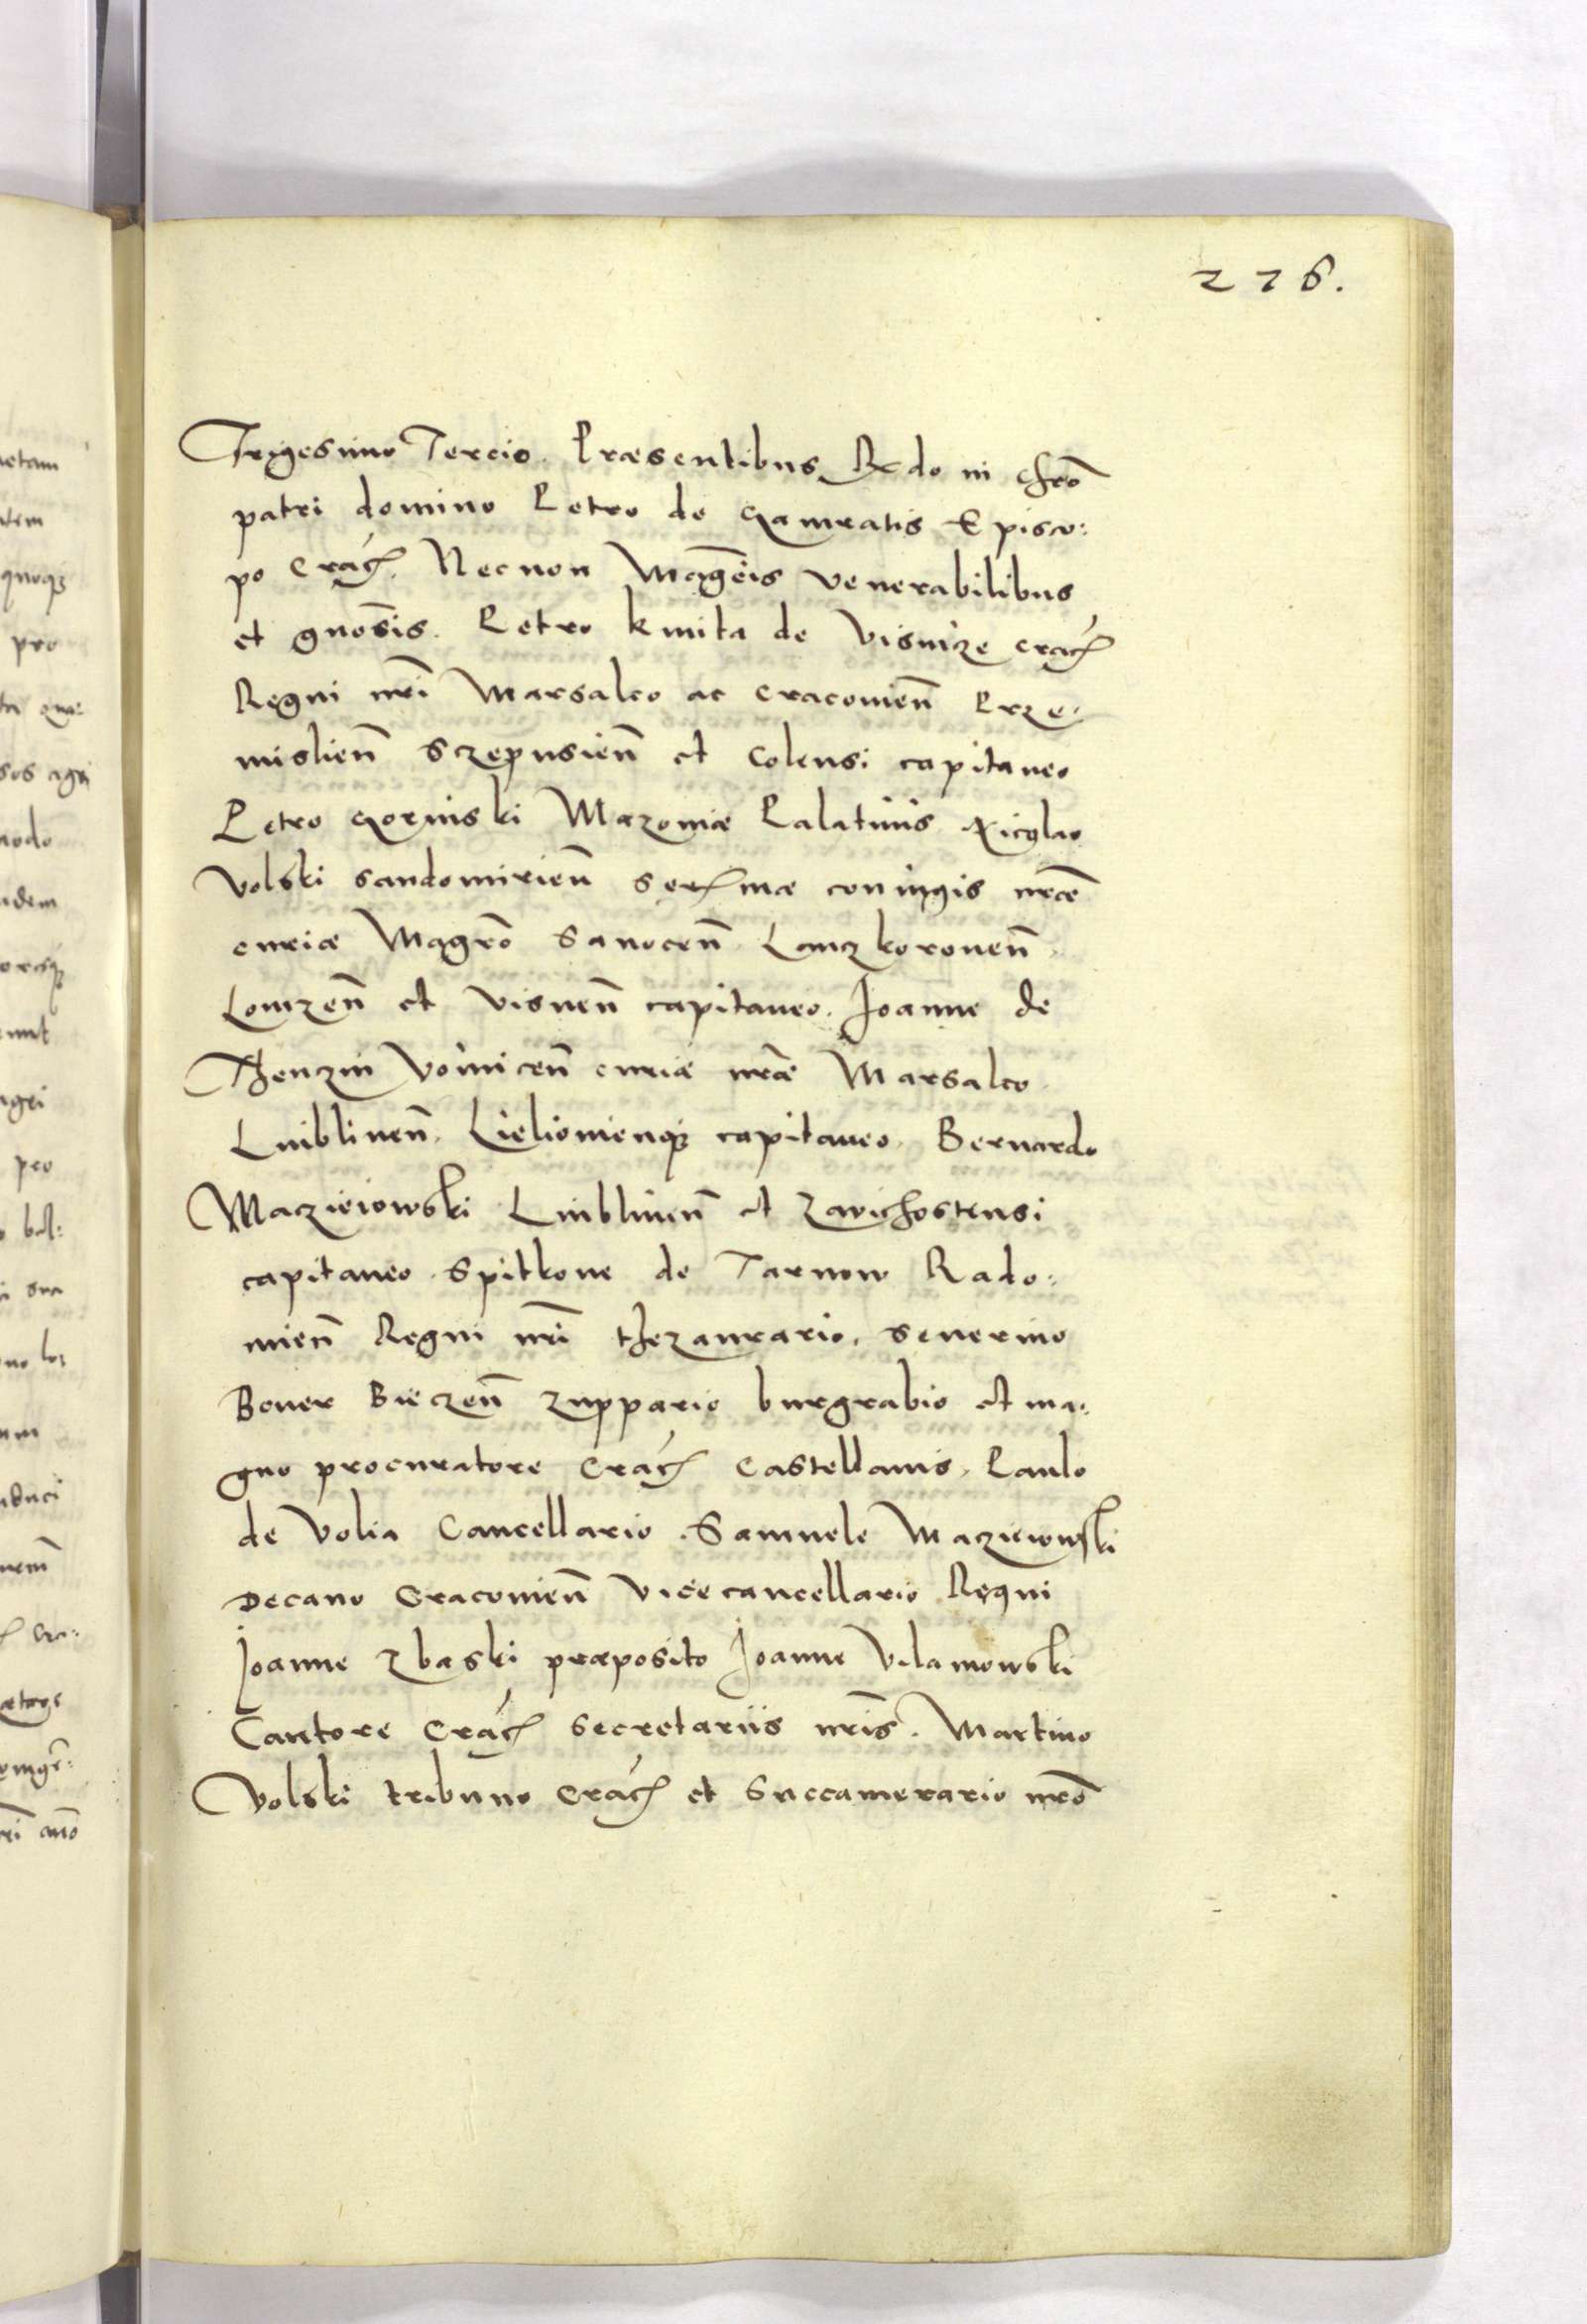 226.
Trigesimo Tercio. Præsentibus Rdo in chrō
patri domino Petro de Gamratis Episco:
po Cracȝ. Necnon Magcīs venerabilibus
et gnosīs. Petro kmita de Visnize cracȝ
Regni nrī Marsalco ac cracovienn̄ Prze:
mislienn̄ Sczepusienn̄ et Colensi capitaneo
Petro Gorinski Mazoviæ Palatinis Nicolao
Volski sandomirienn̄ serȝmæ coniugis nrǣ
curiæ Magrō Sanocenn̄ Lanczkoronenn̄
Lomzenn̄ et visnenn̄ capitaneo. Joanne de
Thenzin Voinicenn̄ curiæ nrǣ Marsalco
Lublinenn̄. Lielovienqȝ capitaneo. Bernardo
Macziewiowski Lublinenn̄ et zavichostensi
capitaneo. Spitkone de Tarnow Rado:
mienn̄ Regni nrī thezaurario. Severino
Boner Bieczenn̄ zuppario burgrabio et ma:
gno procuratore Cracȝ Castellanis. Paulo
de Volia Cancellario. Samuele Macziewowski
Decano Cracovienn̄ Vicecancellario Regni
Joanne zbaski præposito Joanne Vilamowski
Cantore Cracȝ Secretariis nrīs. Martino
Volski tribuno Cracȝ et Succamerario nrō